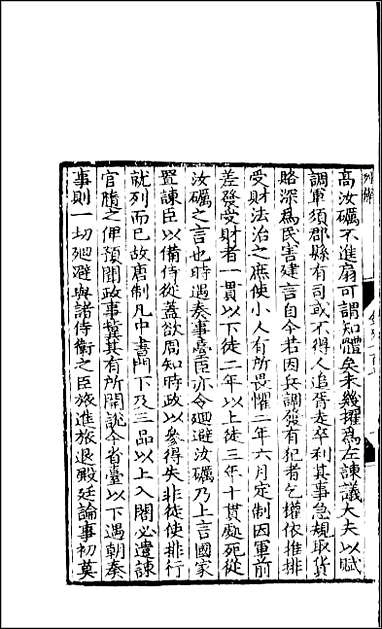 高汝礪不進扇可謂知體矣未幾擢為左諫議大夫以賦
調軍須郡縣有司或不得人追胥走卒利其事急規取貨
賂深為民害建言自今若因兵調發有犯者乞權依推排
受財法治之庶使小人有所畏懼二年六月定制因軍前
差發受財者一貫以下徒二年以上徒三年十貫處死從
汝礪之言也時遇奏事臺臣亦令廻避汝礪乃上言國家
置諫臣以備侍從蓋欲周知時政以參得失非徒使排行
就列而已故唐制凡中書門下及三品以上入閤必遣諫
官隨之俾預聞政事冀其有所開說今省臺以下遇朝奏
事則一切廻避與諸侍衛之臣旅進旅退殿廷論事初莫